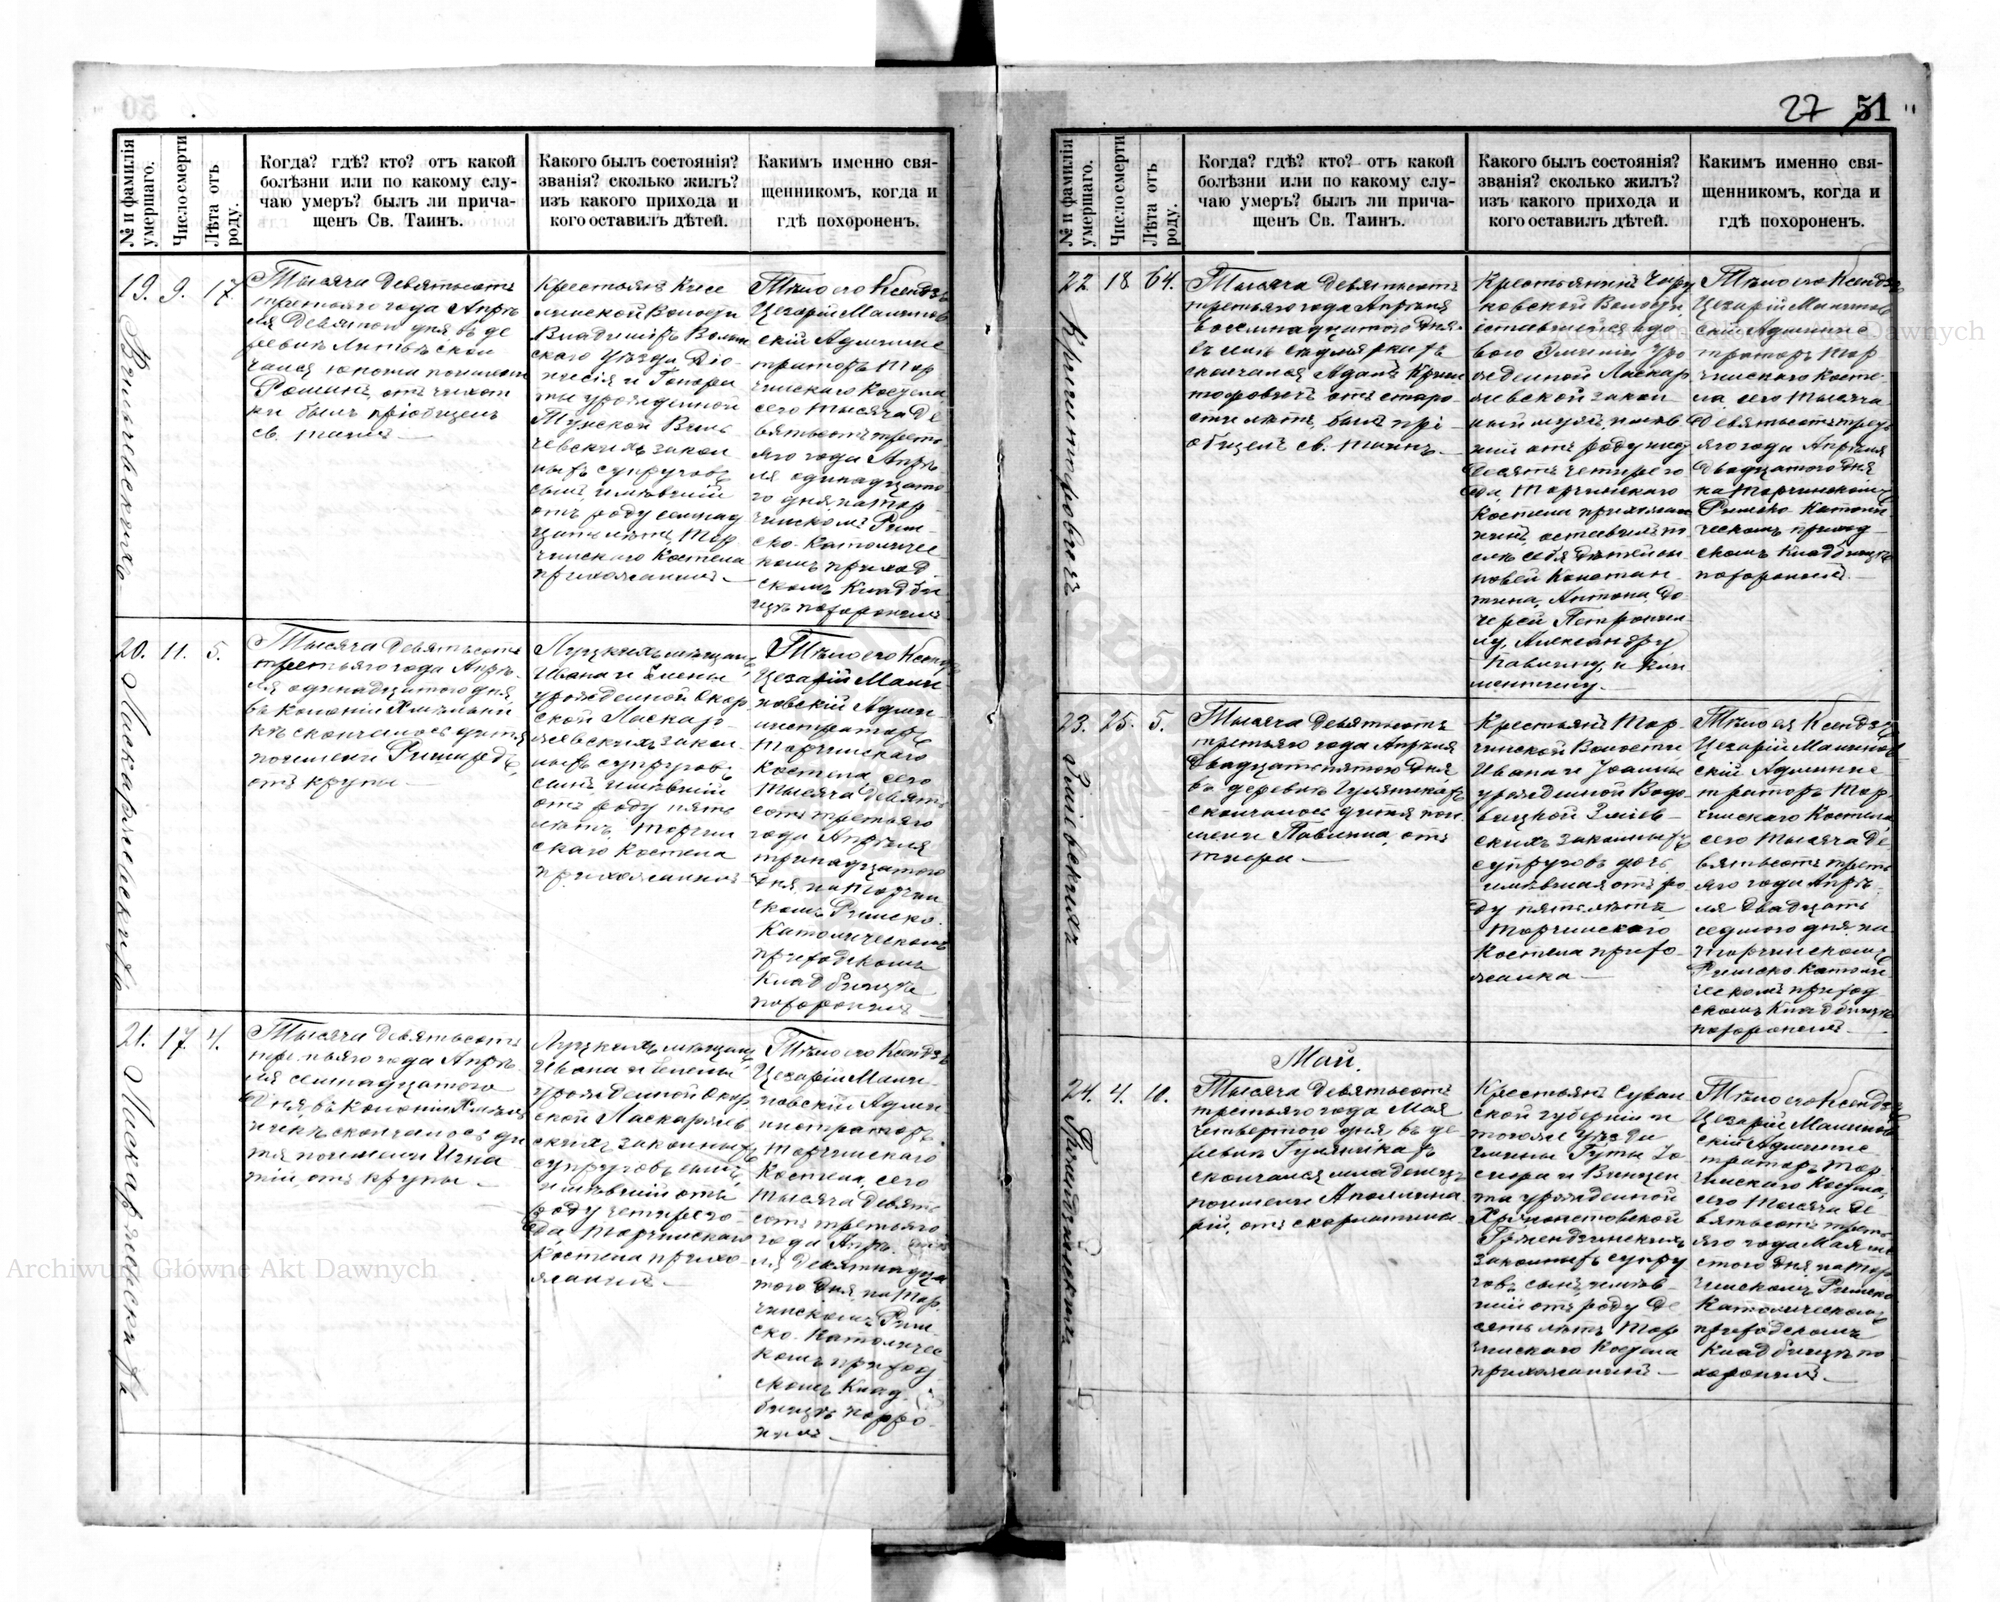 27 51
№ и фамилія умершаго.
Число смерти
Лѣта отъ роду.
Когда? гдѣ? кто? отъ какой
болѣзни или по какому слу-
чаю умеръ? былъ ли прича-
щенъ Св. Таинъ.
Какого былъ состоянія?
званія? сколько жилъ?
изъ какого прихода и
кого оставилъ дѣтей.
Какимъ именно свя-
щенникомъ, когда и
гдѣ похороненъ.
19.
9.
17.
Тысяча девятьсотъ
третьяго года Апрѣ
ля девятой дня въ де
ревнѣ
скон
чался юноша по имени
Романъ, отъ чахот
ки былъ пріобщенъ
св. таинъ
Крестьянъ Кисе
линской Волости
Владиміръ Волын
скаго уѣзда Діо
нисія и Гонора
ты урожденной
чевскихъ закон
ныхъ супруговъ
сынъ, имѣвшій
отъ роду семнад
цать лѣтъ, Тор
чинскаго Костела
прихожанинъ
Тѣло его Ксендзъ
Цезарій Малинов
скій Админис
траторъ Тор
чинскаго Костела
сего тысяча де
вятьсотъ треть
яго года Апрѣ
ля одинадцато
го дня, на Тор
чинскомъ Рим-
ско-Католичес
комъ приход
скомъ Кладби
щѣ похоронилъ
20.
11.
5.
Ласкаржевскій
Тысяча девятьсотъ
третьяго года Апрѣ
ля одинадцатого дня,
въ колоніи
кѣ скончалось дитя
по имени Ришардъ,
отъ крупы
Луцкихъ мѣщанъ,
Ивана и Елены
урожденной
ской Ласкар-
жевскихъ закон
ныхъ супруговъ
сынъ, имѣвшій
отъ роду пять
лѣтъ, Торчин
скаго Костела
прихожанинъ
Тѣло его Ксендзъ
Цезарій Мали
новскій Админ
истраторъ
Торчинскаго
Костела, сего
тысяча девять
сотъ третьяго
года Апрѣля
тринадцатого
дня, на Торчин
скомъ Римско-
Католическомъ
приходскомъ
Кладбищѣ
похоронилъ
21.
17.
4.
Ласкаржевскій
Тысяча девятьсотъ
третьяго года Апрѣ-
ля семнадцатого
дня, въ колоніи
никъ скончалось ди
тя по имени Игна
тій, отъ крупы
Луцкихъ мѣщанъ
Ивана и Елены,
урожденной
ской Ласкаржев
скихъ законныхъ
супруговъ сынъ,
имѣвшій отъ
роду четыре го-
да, Торчинскаго
Костела прихо
жанинъ
Тѣло его Ксендзъ
Цезарій Мали-
новскій Админ
истраторъ
Торчинскаго
Костела, сего
тысяча девять
сотъ третьяго
года Апрѣ
ля девятнадца
того дня на Тор
чинскомъ Рим-
ско-Католичес-
комъ приход
скомъ Клад-
бищѣ похоро-
нилъ
№ и фамилія умершаго.
Число смерти
Лѣта отъ роду.
Когда? гдѣ? кто? отъ какой
болѣзни или по какому слу-
чаю умеръ? былъ ли прича-
щенъ Св. Таинъ.
Какого былъ состоянія?
званія? сколько жилъ?
изъ какого прихода и
кого оставилъ дѣтей.
Какимъ именно свя-
щенникомъ, когда и
гдѣ похороненъ.
22
18
64.
Криштофовичъ
Тысяча девятьсотъ
третьяго года Апрѣля
восемнадцатого дня
въ
скончался Адамъ Криш
тофовичъ отъ старо
сти лѣтъ, былъ прі
общенъ св. таинъ
Крестьянинъ Чару
ковской Волости,
оставшійся вдо
вою Эмиліи уро
жденной Ласкар
жевской закон
ный мужъ, имѣв
шій отъ роду шесть
десятъ четыре го
да, Торчинскаго
Костела прихожа
нинъ, оставилъ по
слѣ себя дѣтей: сы
новей Констан
тина, Антона, до
черей Петронел
лу, Александру
Павлину, и Кли
ментину.
Тѣло его Ксендзъ
Цезарій Малинов
скій Админис
траторъ Тор
чинскаго Косте-
ла, сего тысяча
девятьсотъ треть
яго года Апрѣля
двадцатого дня
на Торчинскомъ
Римско-Католи
ческомъ приход
скомъ Кладбищѣ
похоронилъ
23.
25.
5.
Тысяча девятьсотъ
третьяго года Апрѣля
двадцать пятого дня
въ деревнѣ
скончалось дитя по и
мени Павлина, отъ
Крестьянъ Тор-
чинской Волости
Ивана и Іоанны
урожденной
скихъ законныхъ
супруговъ дочь
имѣвшая отъ ро
ду пять лѣтъ
Торчинского
Костела прихо-
жанка
Тѣло ея Ксендзъ
Цезарій Малинов
скій Админис
траторъ Тор
чинскаго Костела,
сего тысяча де
вятьсотъ треть
яго года Апрѣ-
ля двадцать
седмого дня, на
Торчинскомъ
Римско-Католи
ческомъ приход
скомъ Кладбищѣ
похоронилъ
Май.
24.
4.
10.
Тысяча девятьсотъ
третьяго года Мая
четвертого дня въ де
ревнѣ
скончался младенецъ
по имени Аполлина
рій, отъ скарлатины
Крестьянъ Сувал
ской губерніи и
того же уѣзда
гмины Гуты
и Винцен-
ты урожденной
законныхъ супру
говъ сынъ, имѣв
шій отъ роду де
сять лѣтъ Тор
чинскаго Костела
прихожанинъ
Тѣло его Ксендзъ
Цезарій Малинов
скій Админис
траторъ Тор
чинскаго Костела,
сего тысяча де
вятьсотъ треть
яго года Мая ше
стого дня на Тор
чинскомъ Римско
Католическомъ
приходскомъ
Кладбищѣ по
хоронилъ
Archiwum Główne Akt Dawnych